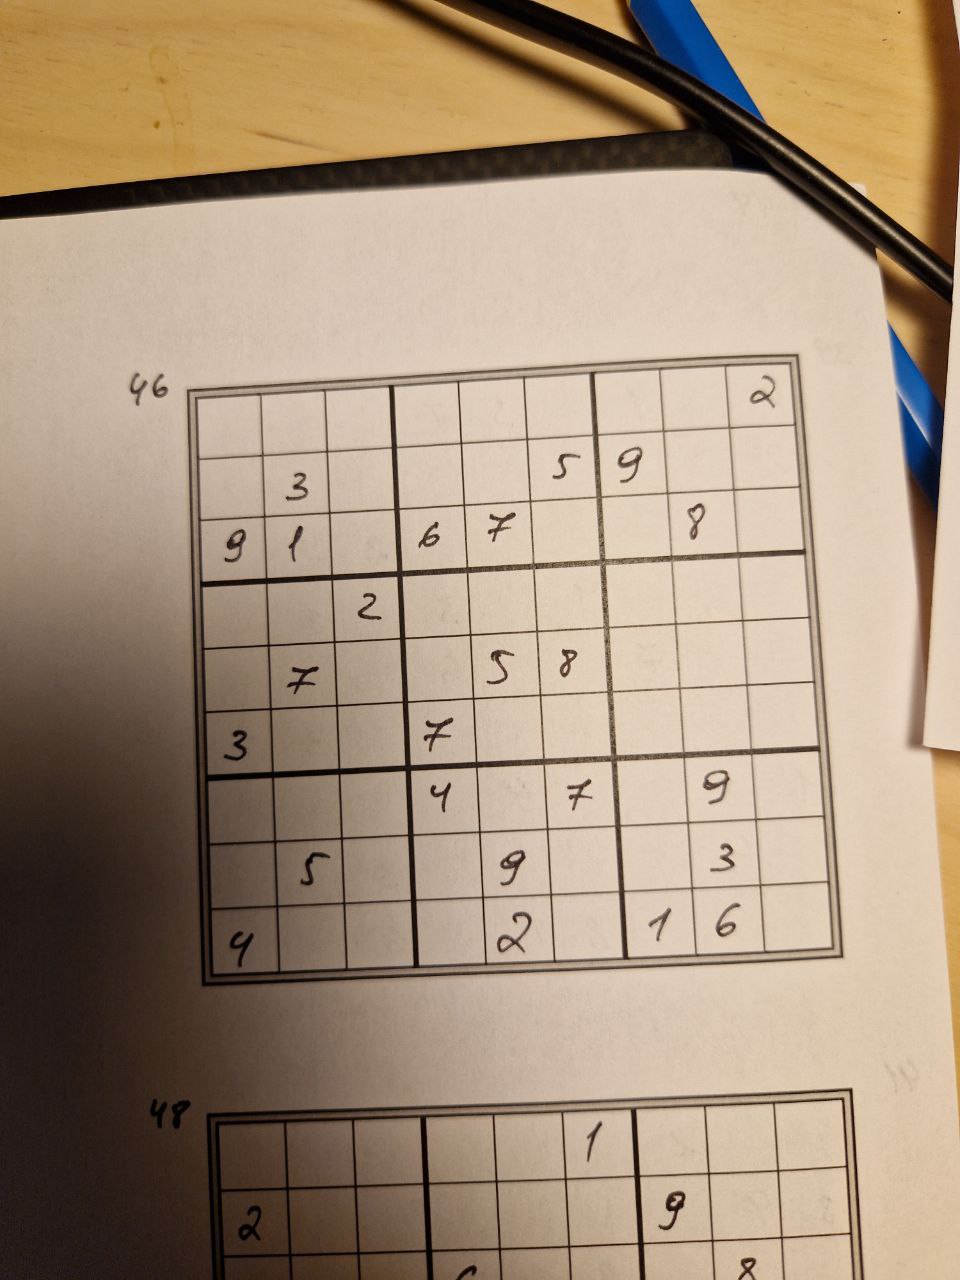 46
2
3 5 9
9 1 6 7 8
2
7 5 8
3 7
4 7 9
5 9 3
4 2 1 6
48
1
2 9
8